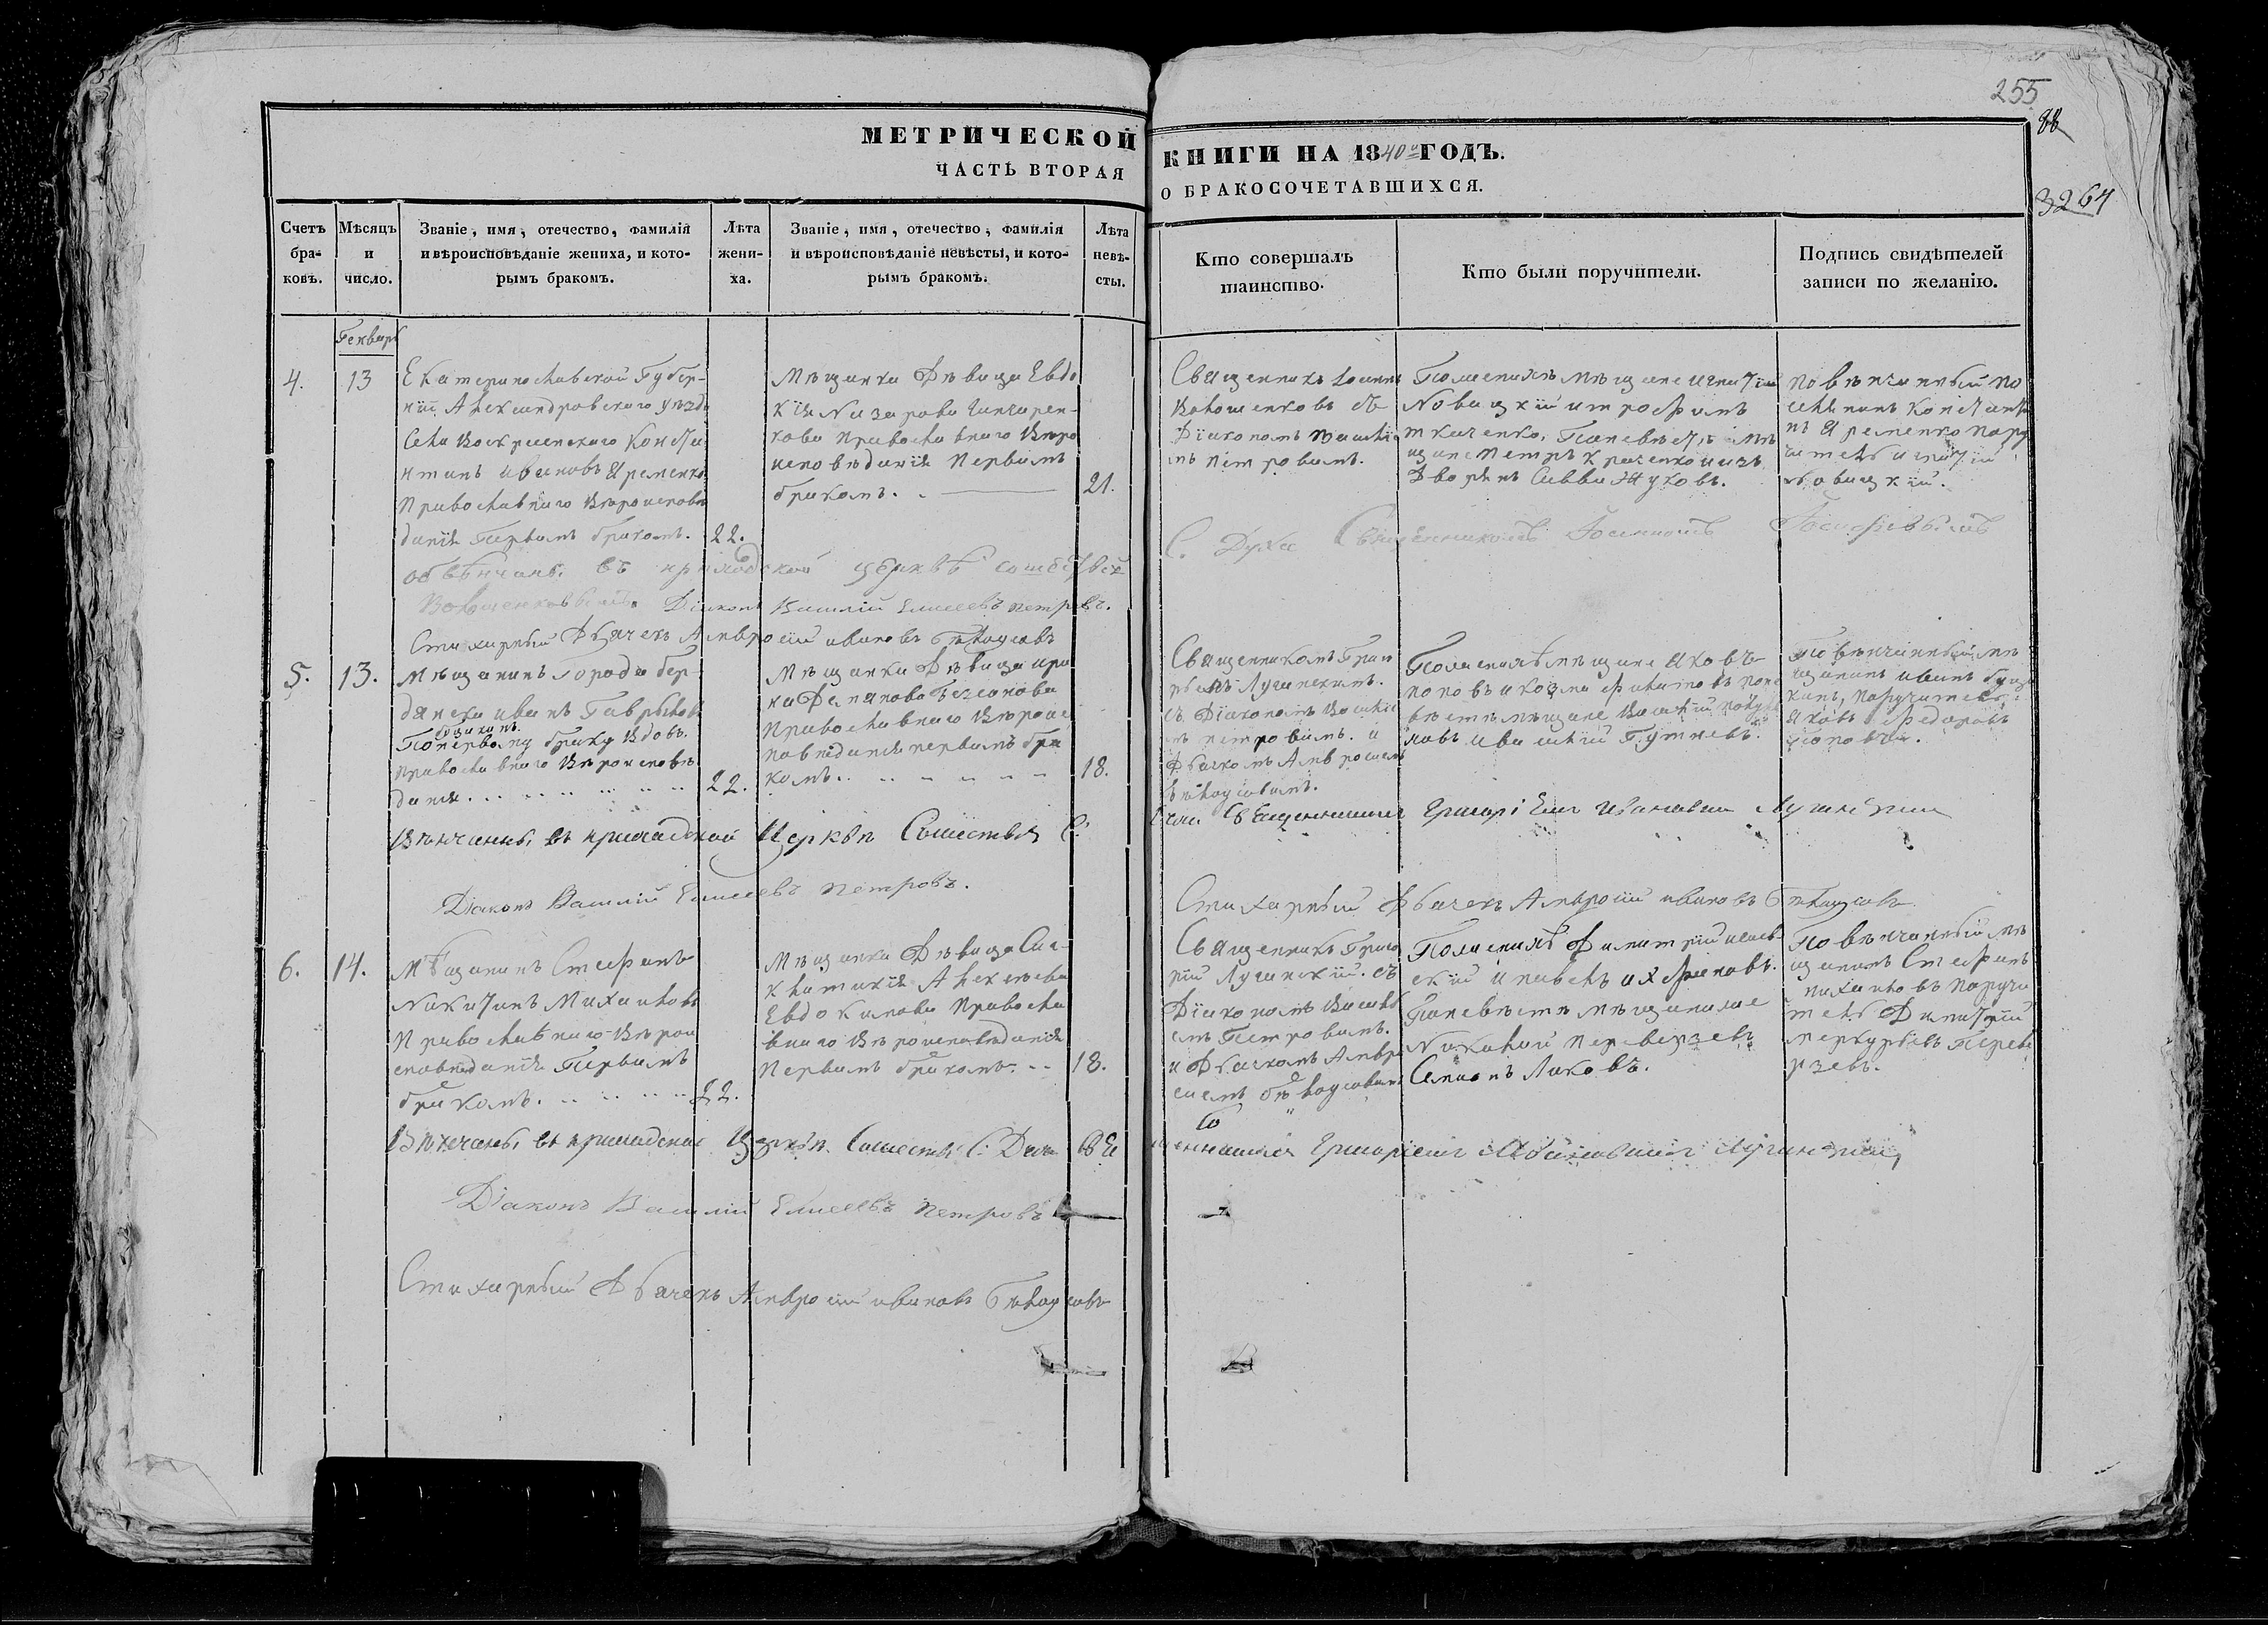 255
88
3264
МЕТРИЧЕСКОЙ КНИГИ НА 1840й ГОДЪ.
ЧАСТЬ ВТОРАЯ О БРАКОСОЧЕТАВШИХСЯ.
Счетъ
бра-
ковъ.
Мѣсяцъ
и
число.
Званіе, имя, отечество, фамилія
и вѣроисповѣданіе жениха, и кото-
рымъ бракомъ.
Лѣта
жени-
ха.
Званіе, имя, отечество, фамилія
и вѣроисповѣданіе невѣсты, и кото-
рымъ бракомъ.
Лѣта
невѣ-
сты.
Кто совершалъ
таинство.
Кто были поручители.
Подпись свидѣтелей
записи по желанію.
Генварь
4.
13
Екатеринославской Губер-
ніи Александровскаго уѣзда
Села Воскресенскаго Конста
нтинъ Ивановъ Яременко
Православнаго Вѣроисповѣ
данія Первымъ бракомъ.
22.
Мѣщанка Дѣвица Евдо
кія Назарова
Православнаго Вѣро
исповѣданія Первымъ
бракомъ.
21.
Священникъ Іоаннъ
Волошенковъ съ
Діакономъ Василіе
мъ Петровымъ.
По женихѣ мѣщане Игнатій
Новицкій и Трофимъ
Ткаченко, По невѣстѣ мѣ
щане Петръ Кравченко и изъ
Дворянъ Савва Жуковъ.
Повѣнчанный по
селянинъ Конставти
нъ Яременко пору
читель Игнатій
Новицкій.
обвѣнчанъ въ приходской церквѣ сошествія С. Духа Священникомъ Іоанномъ Іосифовымъ
Волошенковымъ. Діаконъ Василій Елисеевъ Петровъ.
Стихарный Дьячекъ Амвросій Ивановъ Бѣлоусовъ
5.
13.
Мѣщанинъ города Бер-
дянска Иванъ Гавриловъ
Бузакинъ.
По первому браку вдовъ.
Православнаго Вѣроисповѣ
данія.
22.
Мѣщанка Дѣвица Ири
на
Православнаго Вѣроис
повѣданія первымъ бра
комъ.
18.
Священникомъ Григо
ріемъ Лучинскимъ.
съ Діакономъ Василіе
мъ Петровымъ. и
Дьячкомъ Амвросіемъ
Бѣлоусовымъ.
По женихѣ мѣщане Яковъ
Поповъ и Козма Филатовъ по не
вѣстѣ мѣщане Василій
Гутневъ.
Повѣнчанный мѣ
щанинъ Иванъ Буза
кинъ, поручитель:
Яковъ Федоровъ
Поповъ.
Вѣнчанъ, въ приходской Церквѣ Сошествія С. Священникомъ Григоріемъ Ивановымъ Лучинскимъ
Діаконъ Василій Елисеевъ Петровъ.
Стихарный Дьячекъ Амвросій Ивановъ Бѣлоусовъ
6.
14.
Мѣщанинъ Стефанъ
Никитинъ Михайловъ
Православнаго Вѣрои
сповѣданія Первымъ
бракомъ.
22.
Мѣщанка Дѣвица
Алексѣева
Евдокимова Правосла
внаго Вѣроисповѣданія
Первымъ бракомъ.
18.
Священникъ Григо
рій Лучинскій. съ
Діакономъ Василі
емъ Петровымъ.
и Дьячкомъ Амвро
сіемъ Бѣлоусовымъ
По женихѣ Димитрій
и Павелъ
По невѣстѣ мѣщанинъ
Николай Переверзевъ
Семіонъ Лаковъ.
Повѣнчанный мѣ
щанинъ Стефанъ
Михайловъ поручи
тель Димитрій
Меркурьевъ Переве
рзевъ.
Вѣнчанъ, въ приходской Церквѣ Сошествія С: Духа Священникомъ Григоріемъ Ивановымъ Лучинскимъ
Діаконъ Василій Елисеевъ Петровъ
Стихарный Дьячекъ Амвросій Ивановъ Бѣлоусовъ